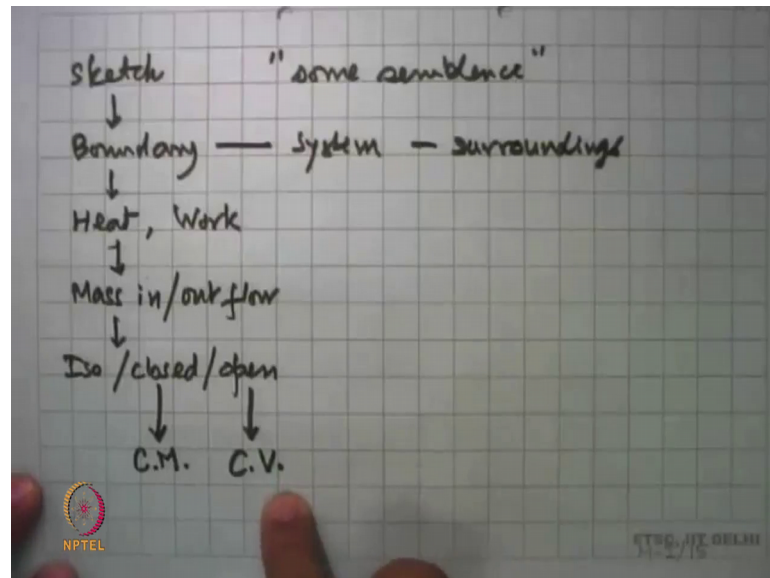 Sketch "some semblence"
Boundary — System — surroundings
Heat, Work
Mass in/out flow
Iso/closed/open
C.M. C.V.
NPTEL
ETSC, IIT DELHI